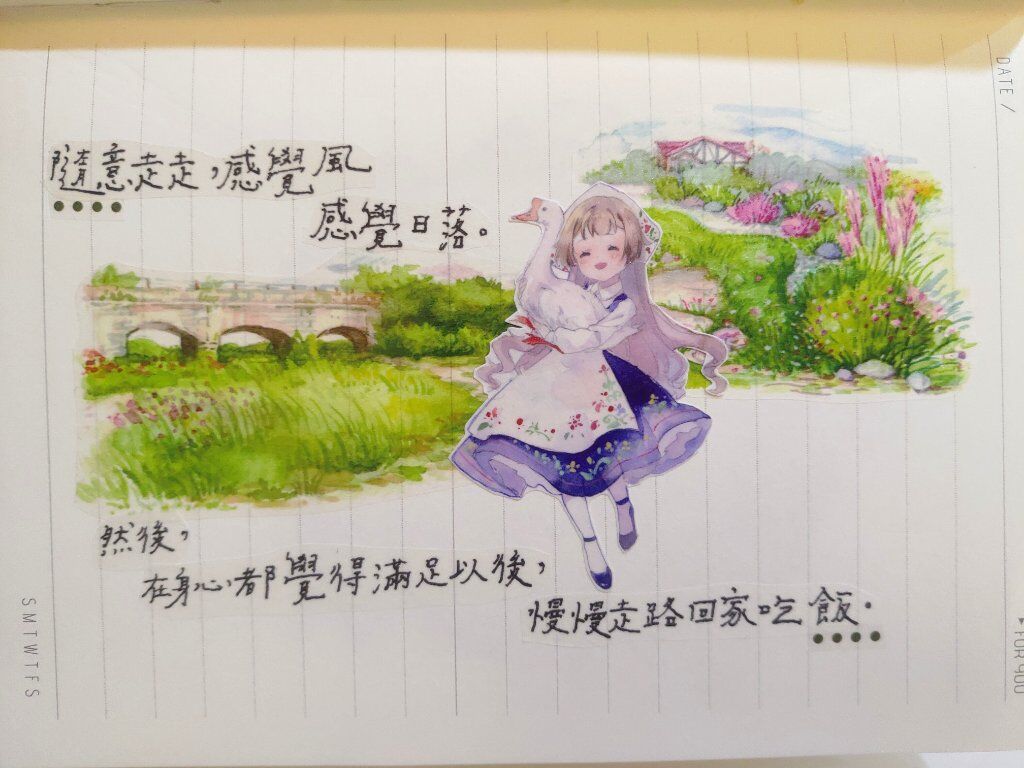 隨意走走，感覺風
感覺日落。
然後，
在身心都覺得滿足以後，
慢慢走路回家吃飯.
DATE /
S M T W T F S
FOR YOU